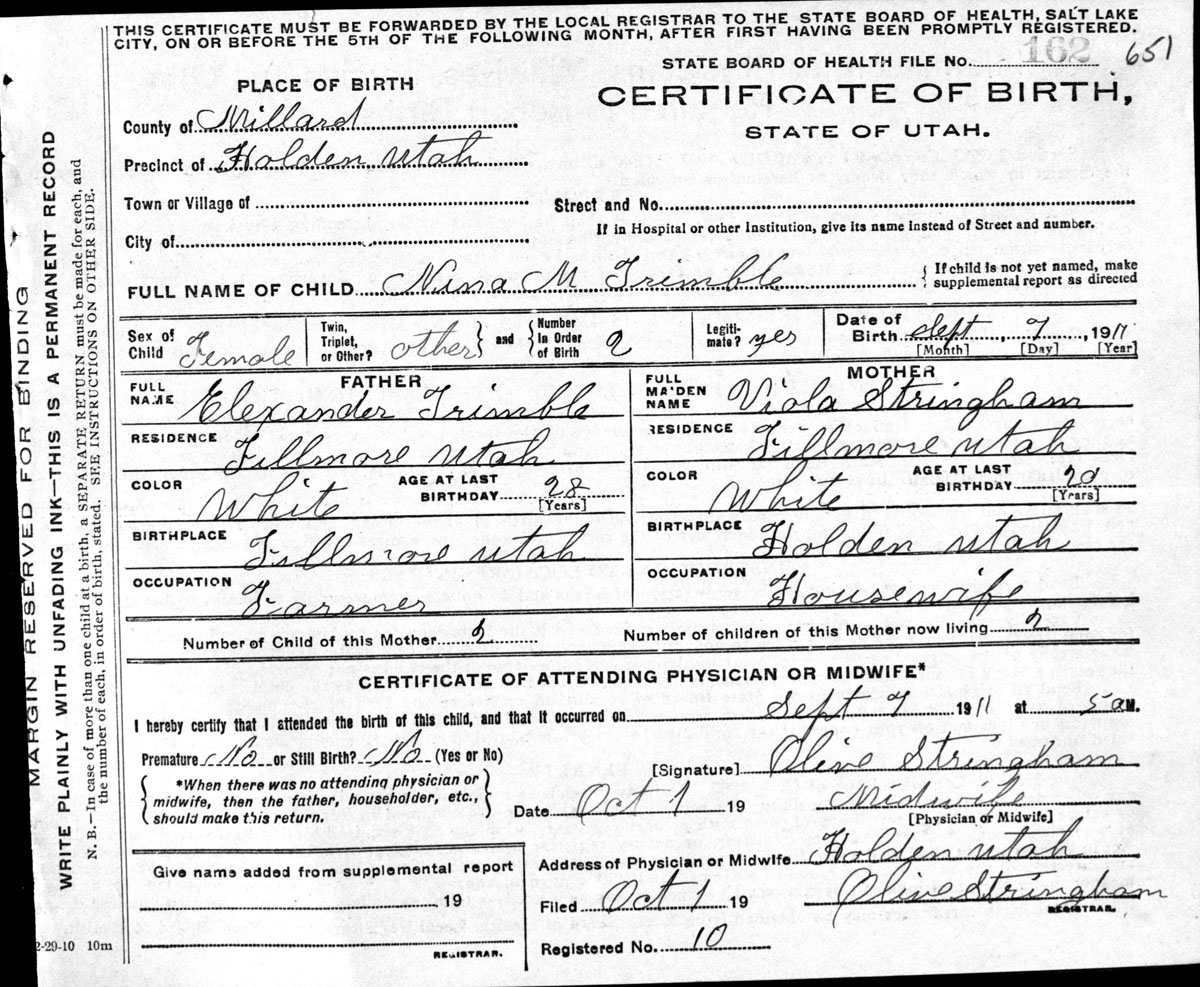 THIS CERTIFICATE MUST BE FORWARDED BY THE LOCAL REGISTRAR TO THE STATE BOARD OF HEALTH, SALT LAKE
CITY, ON OR BEFORE THE 5TH OF THE FOLLOWING MONTH, AFTER FIRST HAVING BEEN PROMPTLY REGISTERED.
STATE BOARD OF HEALTH FILE No. 162 651
PLACE OF BIRTH
CERTIFICATE OF BIRTH,
STATE OF UTAH.
County of Millard
Precinct of Holden Utah
Town or Village of
Street and No.
City of
If in Hospital or other Institution, give its name instead of Street and number.
FULL NAME OF CHILD Nina M Trimble { If child is not yet named, make
supplemental report as directed
Sex of Child Female Twin, Triplet, or Other? other } and { Number In Order of Birth 2 Legiti-mate? yes Date of Birth Sept 7, 1911
[Month] [Day] [Year]
FATHER MOTHER
FULL NAME Elexander Trimble FULL MAIDEN NAME Viola Stringham
RESIDENCE Fillmore Utah RESIDENCE Fillmore Utah
COLOR White AGE AT LAST BIRTHDAY 28 [Years] COLOR White AGE AT LAST BIRTHDAY 20 [Years]
BIRTHPLACE Fillmore Utah BIRTHPLACE Holden Utah
OCCUPATION Farmer OCCUPATION Housewife
Number of Child of this Mother 2 Number of children of this Mother now living 2
CERTIFICATE OF ATTENDING PHYSICIAN OR MIDWIFE*
I hereby certify that I attended the birth of this child, and that it occurred on Sept 7 1911 at 5 a M.
Premature No or Still Birth? No (Yes or No)
[Signature] Olive Stringham
{ *When there was no attending physician or
midwife, then the father, householder, etc., }
should make this return.
Date Oct 1 19 Midwife
[Physician or Midwife]
Address of Physician or Midwife Holden Utah
Give name added from supplemental report
19
REGISTRAR.
Filed Oct 1 19 Olive Stringham
REGISTRAR.
Registered No. 10
2-29-10 10m
MARGIN RESERVED FOR BINDING
WRITE PLAINLY WITH UNFADING INK—THIS IS A PERMANENT RECORD
N. B.—In case of more than one child at a birth, a SEPARATE RETURN must be made for each, and
the number of each, in order of birth, stated. SEE INSTRUCTIONS ON OTHER SIDE.